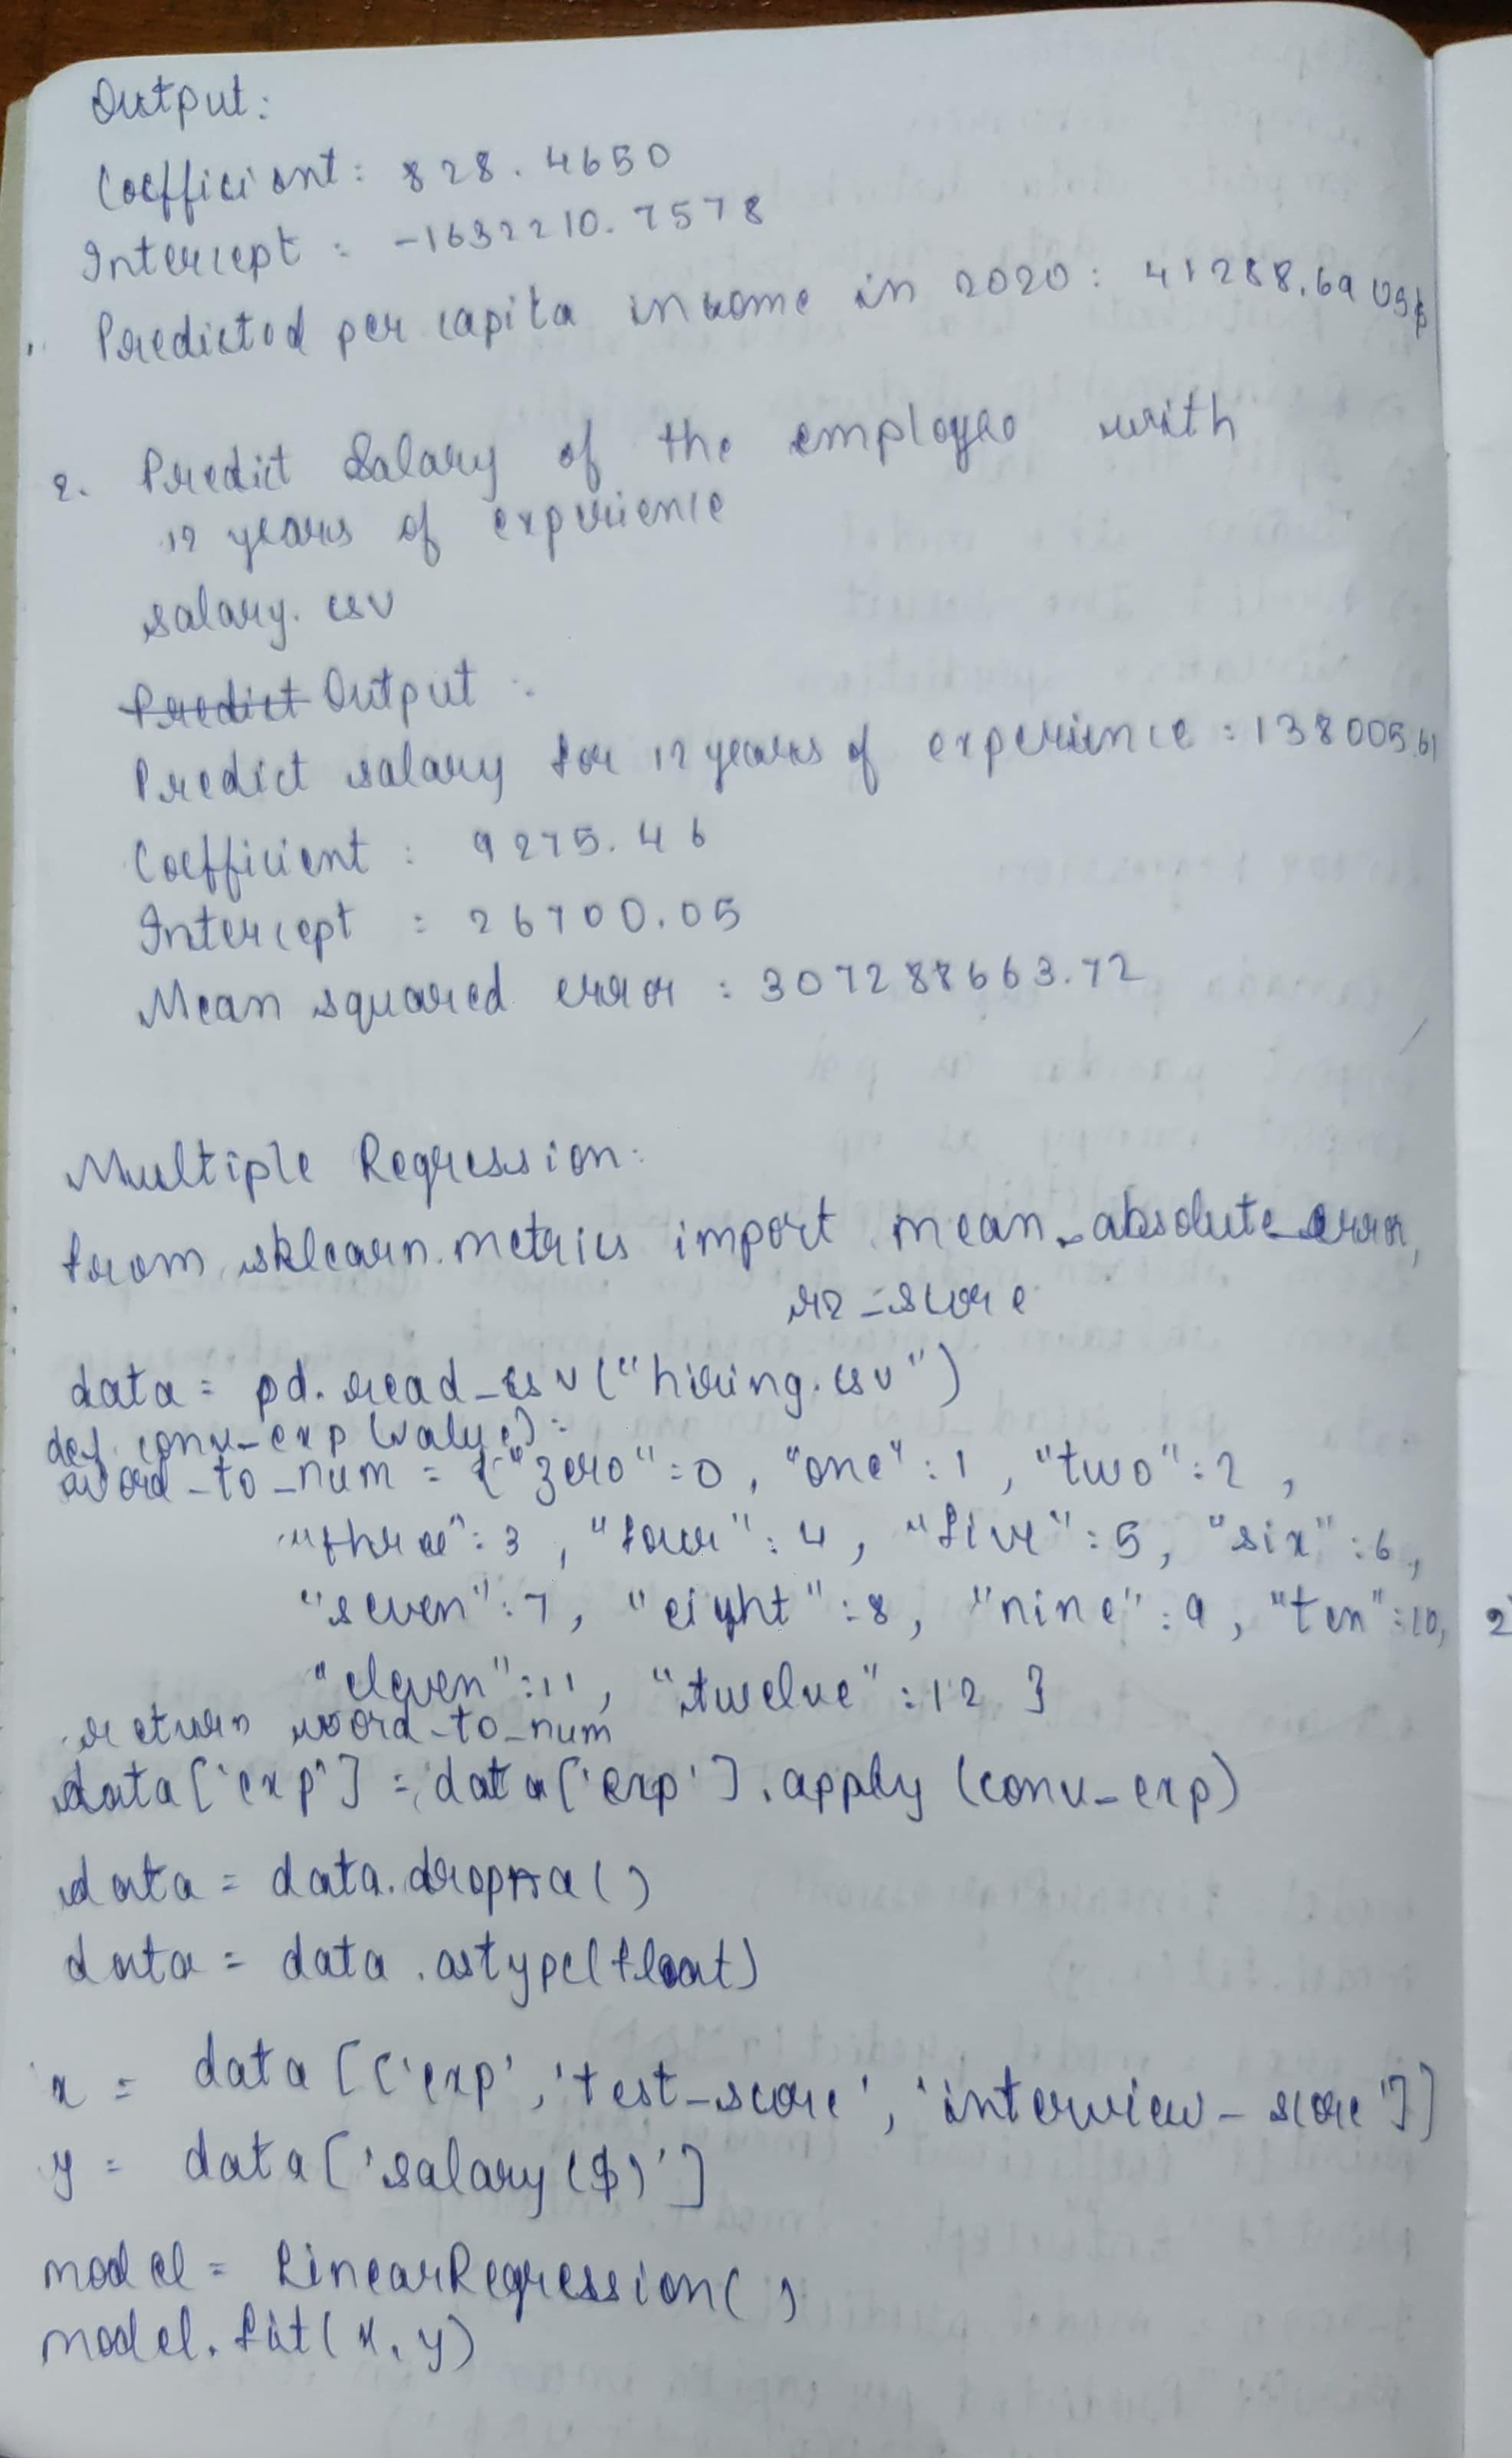 Output:
Coefficient: 828.4650
Intercept : -1632210.7578
Predicted per capita income in 2020: 41288.69 US$
2. Predict Salary of the employee with
12 years of experience
salary.csv
Predict Output :
Predict salary for 12 years of experience : 138005.61
Coefficient : 9275.46
Intercept : 26700.05
Mean squared error : 307288663.72
Multiple Regression:
from sklearn.metrics import mean_absolute_error,
r2_score
data = pd.read_csv("hiring.csv")
def conv_exp(value):
word_to_num = {"zero":0, "one":1, "two":2,
"three":3, "four":4, "five":5, "six":6,
"seven":7, "eight":8, "nine":9, "ten":10,
"eleven":11, "twelve":12 }
return word_to_num
data['exp'] = data['exp'].apply(conv_exp)
data = data.dropna()
data = data.astype(float)
x = data[['exp','test_score','interview_score']]
y = data['salary($)']
model = LinearRegression()
model.fit(x,y)